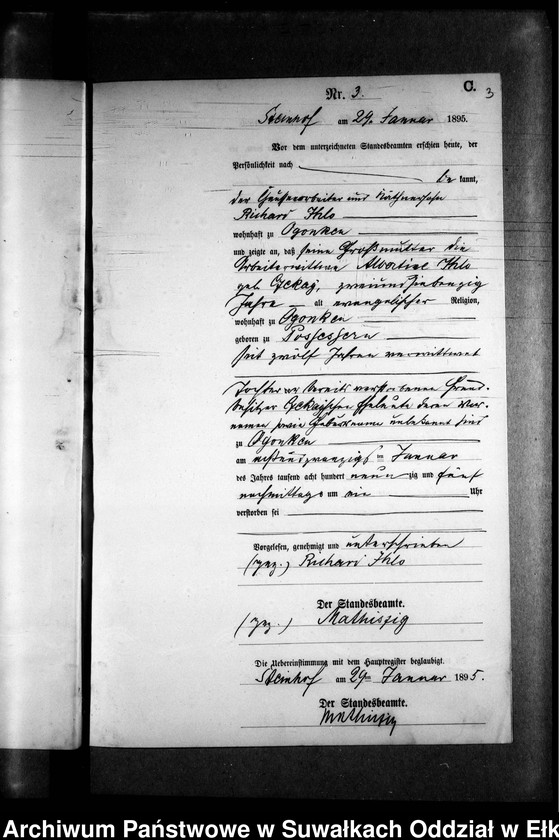 C.
Nr. 3.
3
Steinhof am 29. Januar 1895.
Vor dem unterzeichneten Standesbeamten erschien heute, der
Persönlichkeit nach
be kannt,
der und Käthnersohn
Richard Ihlo
wohnhaft zu Ogonken
und zeigte an, daß seine Großmutter die
Arbeiterwittwe Albertine Ihlo
geb. zweiundsiebenzig
Jahre alt evangelischer Religion,
wohnhaft zu Ogonken
geboren zu Possessern
seit zwölf Jahren verwittwet
Tochter der bereits verstorbenen Grund-
besitzer Eheleute deren Vor-
namen sowie Geburtsname unbekannt sind
zu Ogonken
am achtundzwanzigsten Januar
des Jahres tausend acht hundert neunzig und fünf
nachmittags um Uhr
verstorben sei
Vorgelesen, genehmigt und unterschrieben
(gez.) Richard Ihlo
Der Standesbeamte.
(gez.) Mathiszig
Die Uebereinstimmung mit dem Hauptregister beglaubigt.
Steinhof am 29ten Januar 1895.
Der Standesbeamte.
Mathiszig
Archiwum Państwowe w Suwałkach Oddział w Ełk